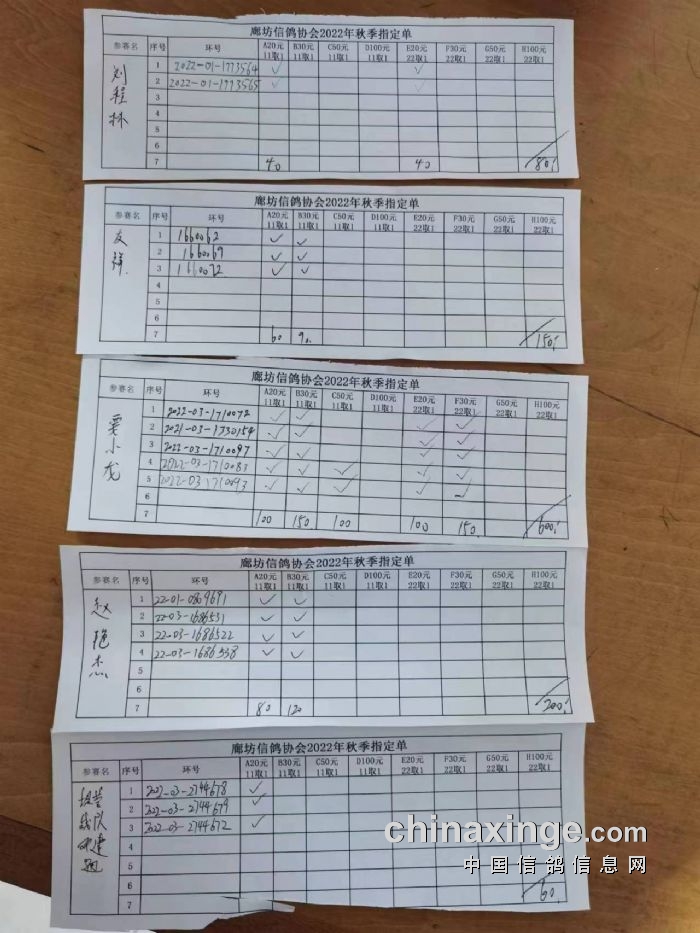 廊坊信鸽协会2022年秋季指定单
参赛名 序号 环号 A20元 11取1 B30元 11取1 C50元 11取1 D100元 11取1 E20元 22取1 F30元 22取1 G50元 22取1 H100元 22取1
刘程林
1 2022-01-1773564 ✓ ✓
2 2022-01-1773565 ✓ ✓
3
4
5
6
7 40 40 80
廊坊信鸽协会2022年秋季指定单
参赛名 序号 环号 A20元 11取1 B30元 11取1 C50元 11取1 D100元 11取1 E20元 22取1 F30元 22取1 G50元 22取1 H100元 22取1
友祥
1 1660062 ✓ ✓
2 1660069 ✓ ✓
3 1660072 ✓ ✓
4
5
6
7 60 90 150
廊坊信鸽协会2022年秋季指定单
参赛名 序号 环号 A20元 11取1 B30元 11取1 C50元 11取1 D100元 11取1 E20元 22取1 F30元 22取1 G50元 22取1 H100元 22取1
小龙
1 2022-03-1710072 ✓ ✓ ✓ ✓
2 2021-03-1730154 ✓ ✓ ✓ ✓
3 2022-03-1710097 ✓ ✓ ✓ ✓
4 2022-03-1710083 ✓ ✓ ✓ ✓ ✓
5 2022-03 1710093 ✓ ✓ ✓ ✓ ✓
6
7 100 150 100 100 150 600
廊坊信鸽协会2022年秋季指定单
参赛名 序号 环号 A20元 11取1 B30元 11取1 C50元 11取1 D100元 11取1 E20元 22取1 F30元 22取1 G50元 22取1 H100元 22取1
赵艳杰
1 22-01-0869691 ✓ ✓
2 22-03-1686531 ✓ ✓
3 22-03-1686522 ✓ ✓
4 22-03-1686538 ✓ ✓
5
6
7 80 120 200
廊坊信鸽协会2022年秋季指定单
参赛名 序号 环号 A20元 11取1 B30元 11取1 C50元 11取1 D100元 11取1 E20元 22取1 F30元 22取1 G50元 22取1 H100元 22取1
1 2022-03-2744678 ✓
2 2022-03-2744679 ✓
3 2022-03-2744672 ✓
4
5
6
7 60
chinaxinge.com
中国信鸽信息网